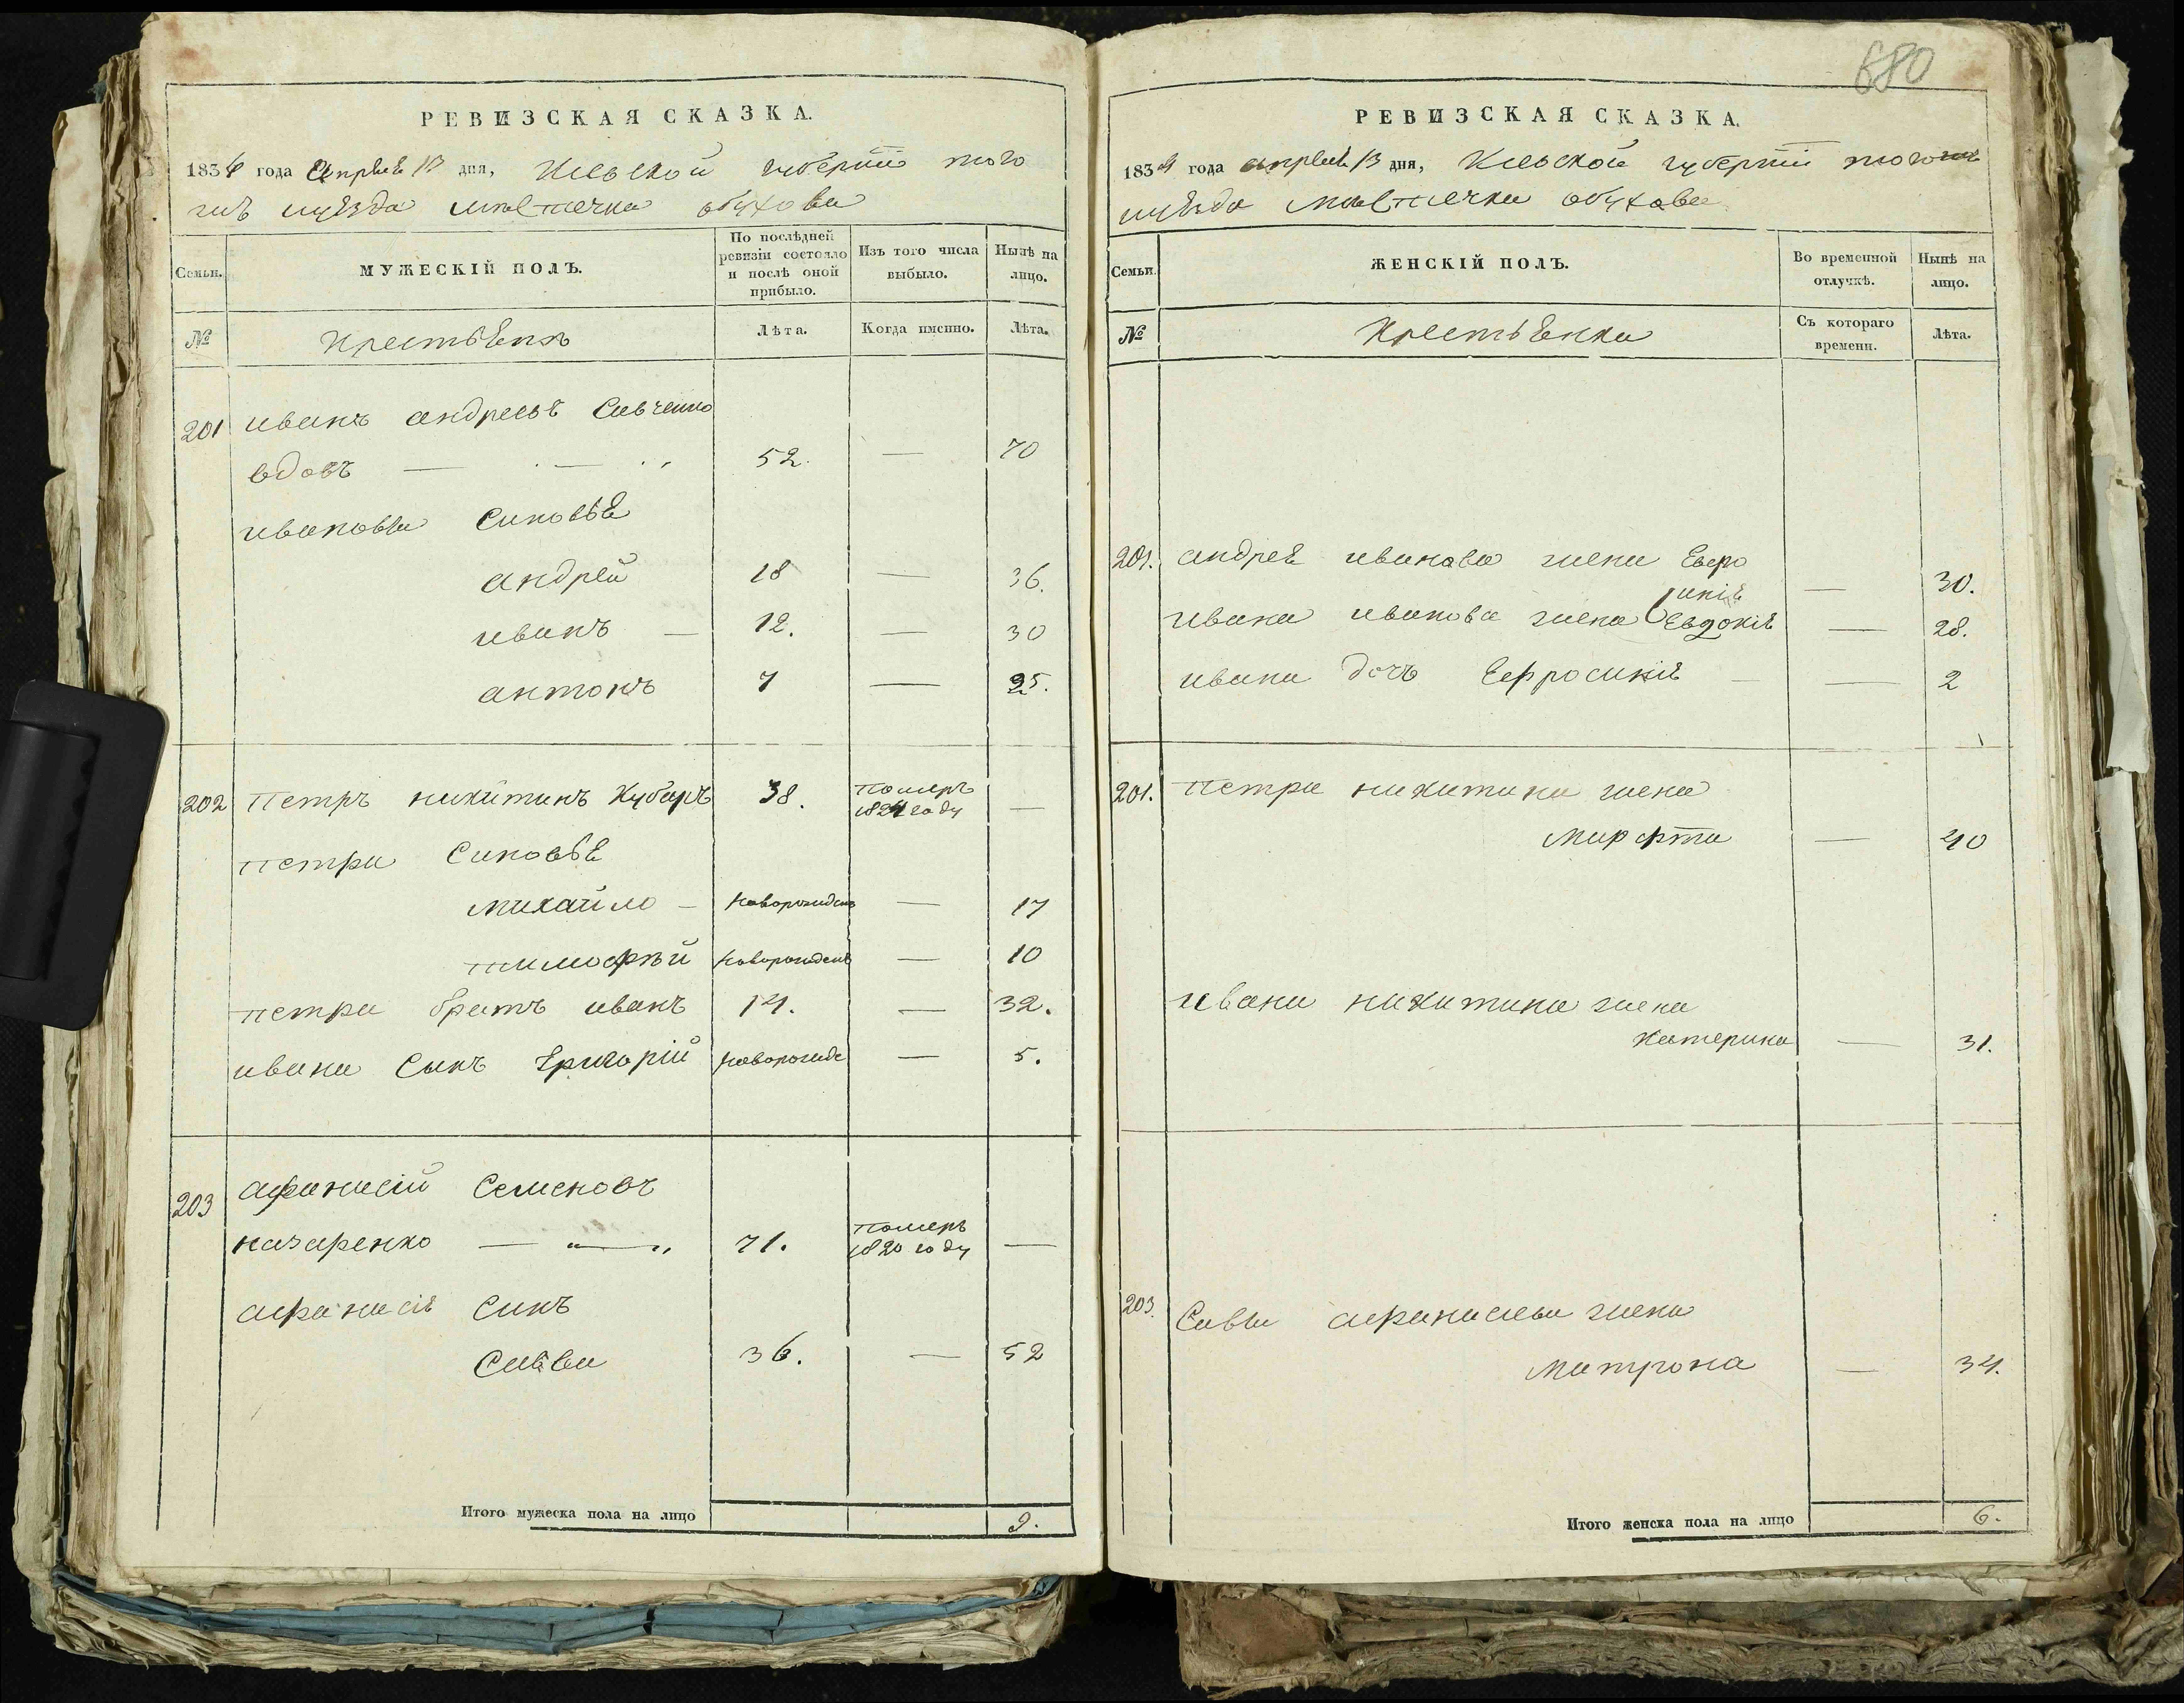 РЕВИЗСКАЯ СКАЗКА.
1834 года апреля 13 дня, Киевской губернии того
жъ уѣзда мѣстечка обухова
Семьи.
МУЖЕСКІЙ ПОЛЪ.
По послѣдней ревизіи состояло и послѣ оной прибыло.
Изъ того числа выбыло.
Нынѣ на лицо.
№
Лѣта.
Когда именно.
Лѣта.
201 иванъ андреевъ Савченко
вдовъ — 52. — 70
ивановы Сыновья
андрей 18 — 36.
иванъ — 12. — 30
антонъ 7 — 25.
202 Петръ никитинъ Кубаръ 38. померъ 1824 году —
петра Сыновья
михайло — новорожденъ — 17
тимофѣй новорожденъ — 10
петра братъ иванъ 14. — 32.
ивана Сынъ Григорій новорожде — 5.
203 афанасій Семеновъ
назаренко — 71. померъ 1820 году —
афанасія Синъ
Савва 36. — 52
Итого мужеска пола на лицо 9.
680
РЕВИЗСКАЯ СКАЗКА.
1834 года апреля 13 дня, Киевской губерніи тогожъ
уѣзда мѣстечка обухова
Семьи.
ЖЕНСКІЙ ПОЛЪ.
Во временной отлучкѣ.
Нынѣ на лицо.
№
Съ котораго времени.
Лѣта.
201. андрея иванова жена Евро
инія — 30.
ивана иванова жена Евдокія — 28.
ивана дочъ Ефросинія — 2
201. Петра никитина жена
Марфта — 40
ивана никитина жена
Катерина — 31.
203. Савы афанасиева жена
Матрона — 34.
Итого женска пола на лицо 6.